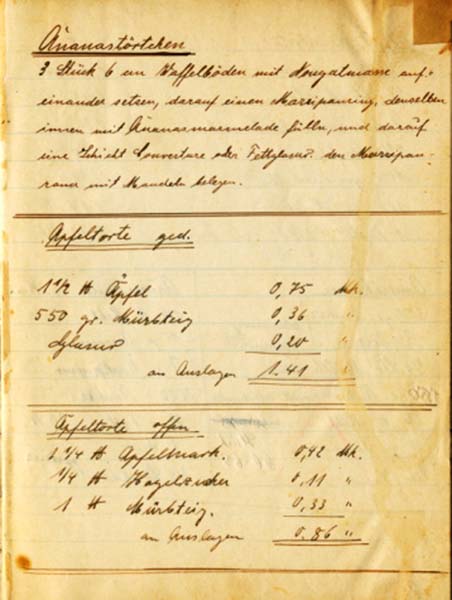 Ananastörtchen
3 Stück 6 cm Waffelböden mit Nougatmasse auf-
einander setzen, darauf einen Marzipanring, denselben
innen mit Ananasmarmelade fülln, und darauf
eine Schicht Couverture oder Fettglasur. den Marzipan-
rand mit Mandeln belegen.
Apfeltorte ged.
1 1/2 ℔ Äpfel 0,75 Mk.
550 gr. Mürbteig 0,36 "
Glasur 0,20 "
an Auslagen 1.41 "
Apfeltorte offen
1 1/4 ℔ Apfelmark. 0,42 Mk.
1/4 ℔ Hagelzucker 0,11 "
1 ℔ Mürbteig. 0,33 "
an Auslagen 0.86 "